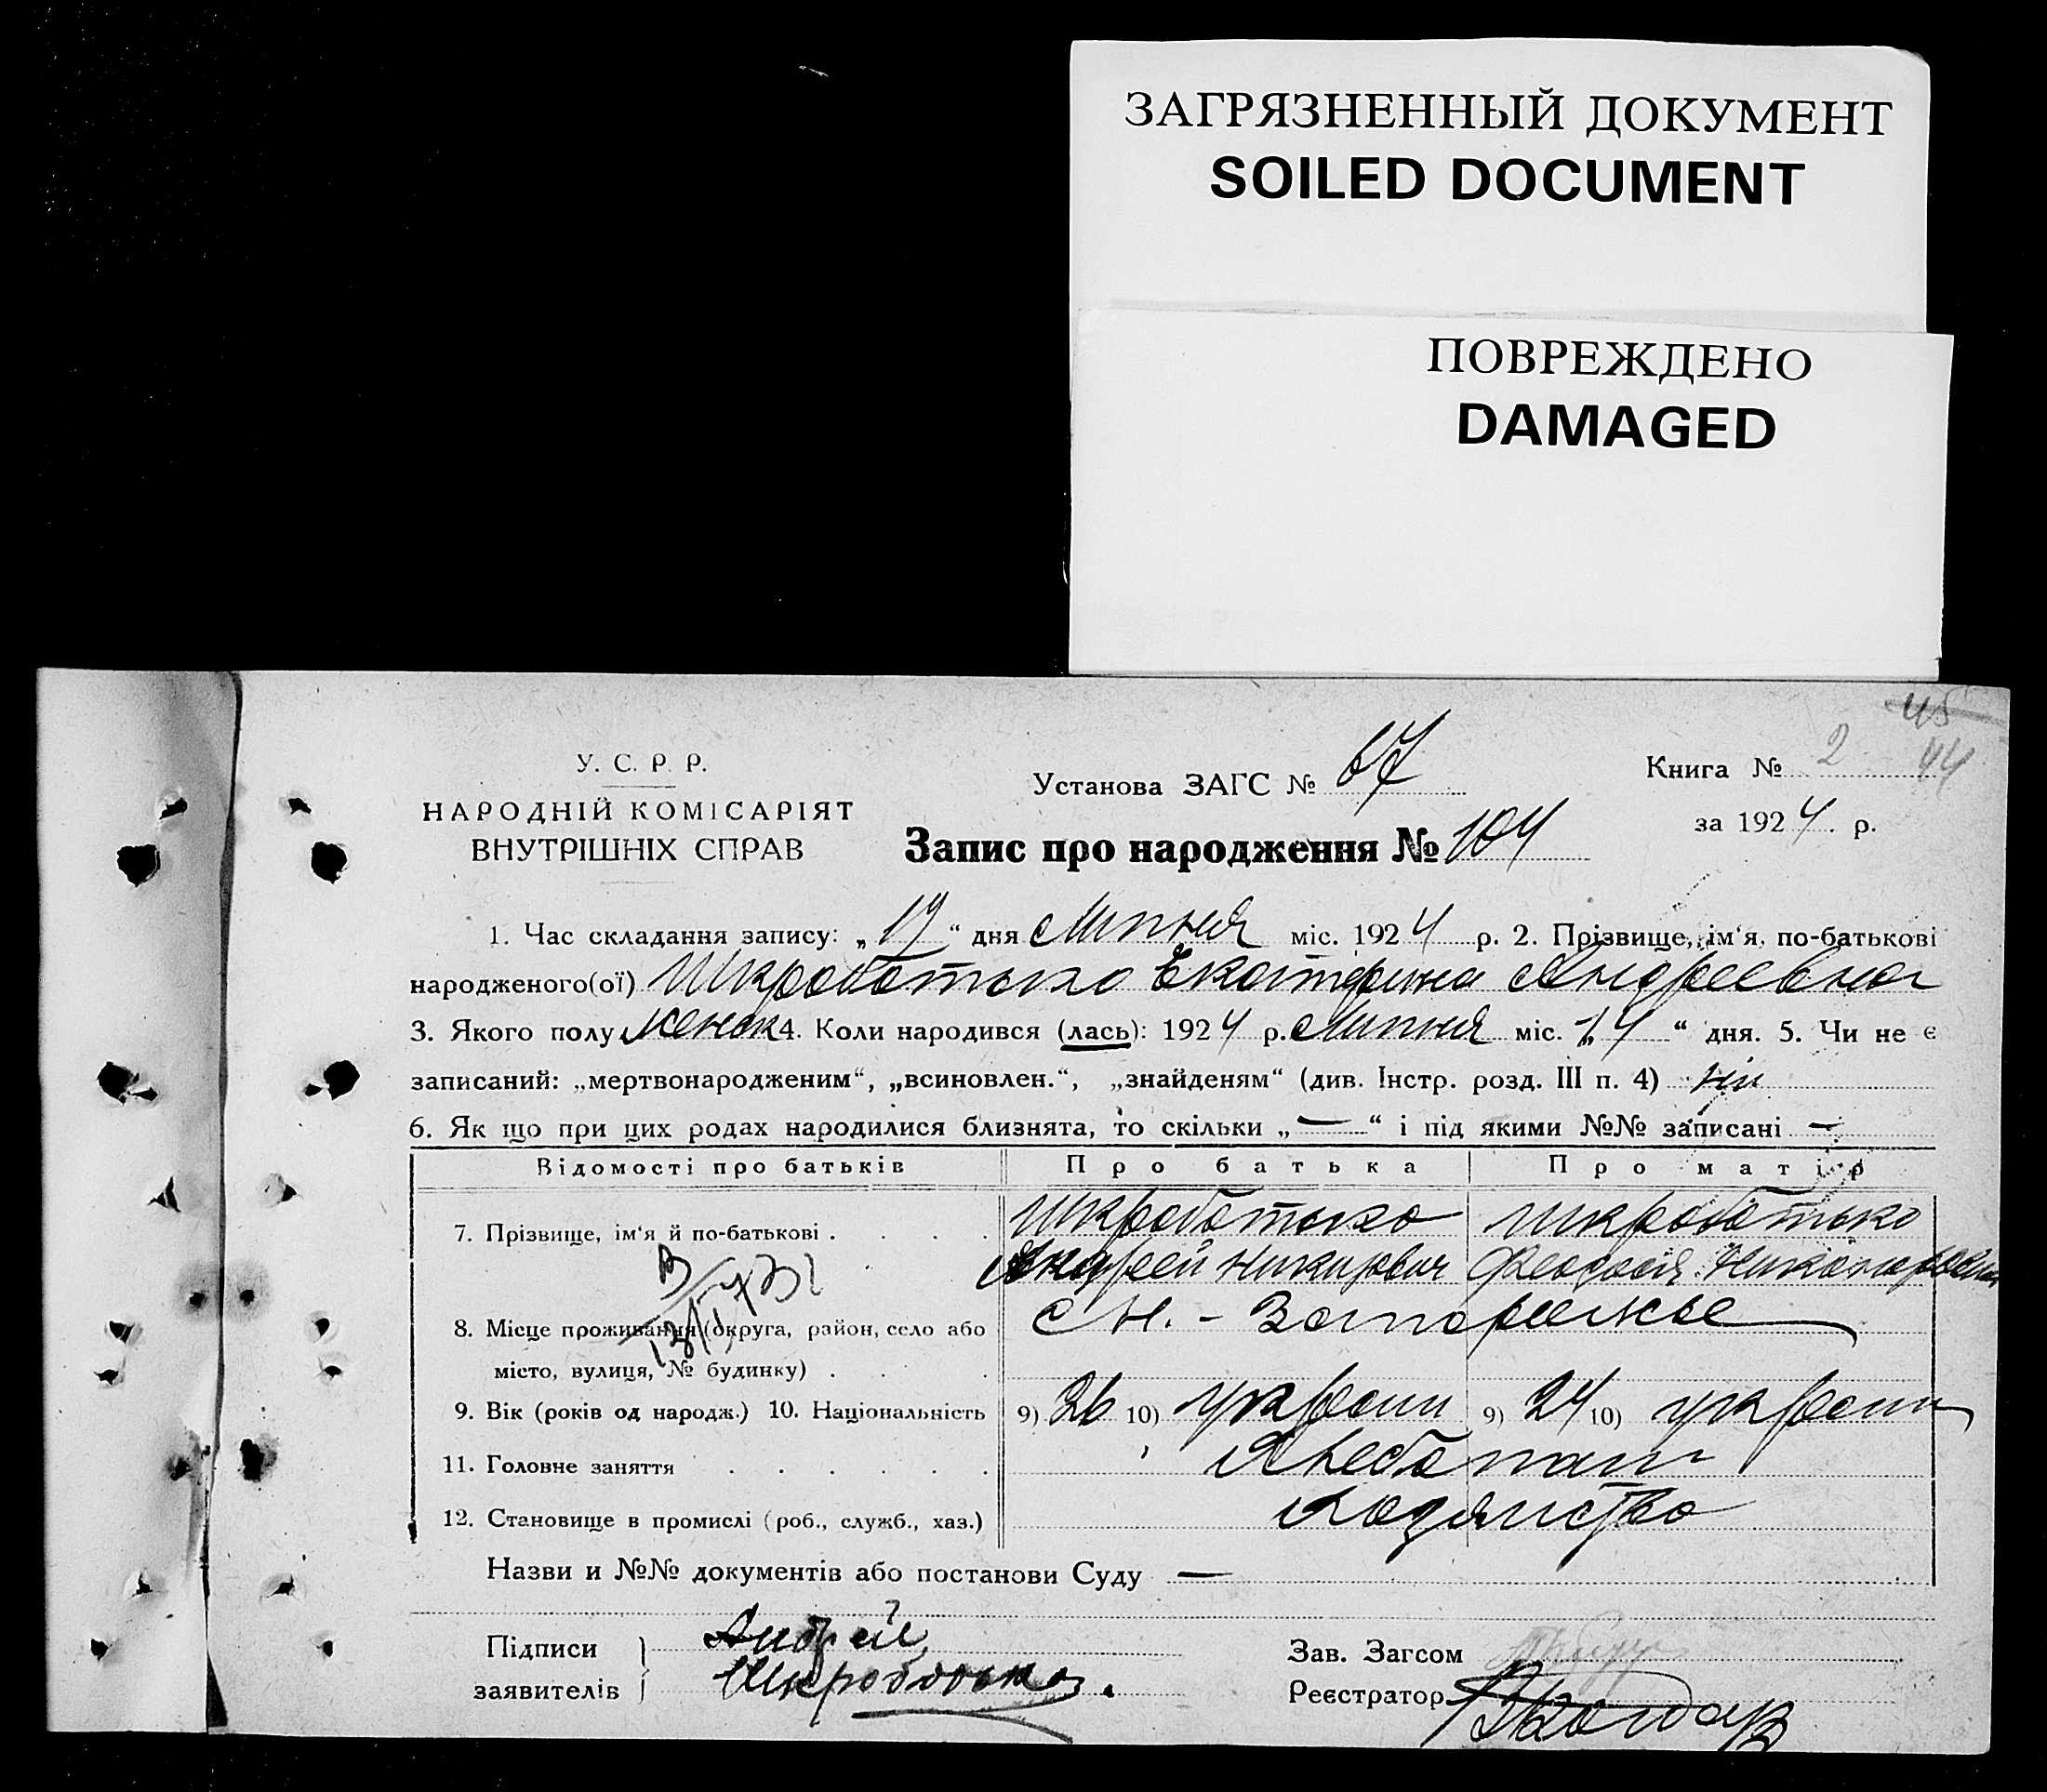 ЗАГРЯЗНЕННЫЙ ДОКУМЕНТ
SOILED DOCUMENT
ПОВРЕЖДЕНО
DAMAGED
45
44
У. С. Р. Р.
НАРОДНІЙ КОМІСАРІЯТ
ВНУТРІШНІХ СПРАВ
Установа ЗАГС № 67
Книга № 2
за 1924 р.
Запис про народження № 104
1. Час складання запису: „19“ дня Липня міс. 1924 р. 2. Прізвище, ім‘я, по-батькові
народженого(ої) Шкроботько Екатерина Андреевна
3. Якого полу женск 4. Коли народився (лась): 1924 р. Липня міс. „14“ дня. 5. Чи не є
записаний: „мертвонародженим“, „всиновлен.“, „знайденям“ (див. Інстр. розд. III п. 4) ні
6. Як що при цих родах народилися близнята, то скільки „—“ і під якими №№ записані —
Відомості про батьків Про батька Про матір
7. Прізвище, ім‘я й по-батькові . . . . Шкроботько Шкроботько
Андрей Никифович Феодосія
8. Місце проживання (округа, район, село або С Н. - Запорожье
місто, вулиця, № будинку) . . .
9. Вік (років од народж.) 10. Національність 9) 26 10) украин 9) 24 10) украин
11. Головне заняття . . . . . . Хлебопаш
12. Становище в промислі (роб., служб., хаз.) Хозяйство
Назви и №№ документів або постанови Суду —
Підписи Андрей
заявителів Шкроботько.
Зав. Загсом
Реєстратор